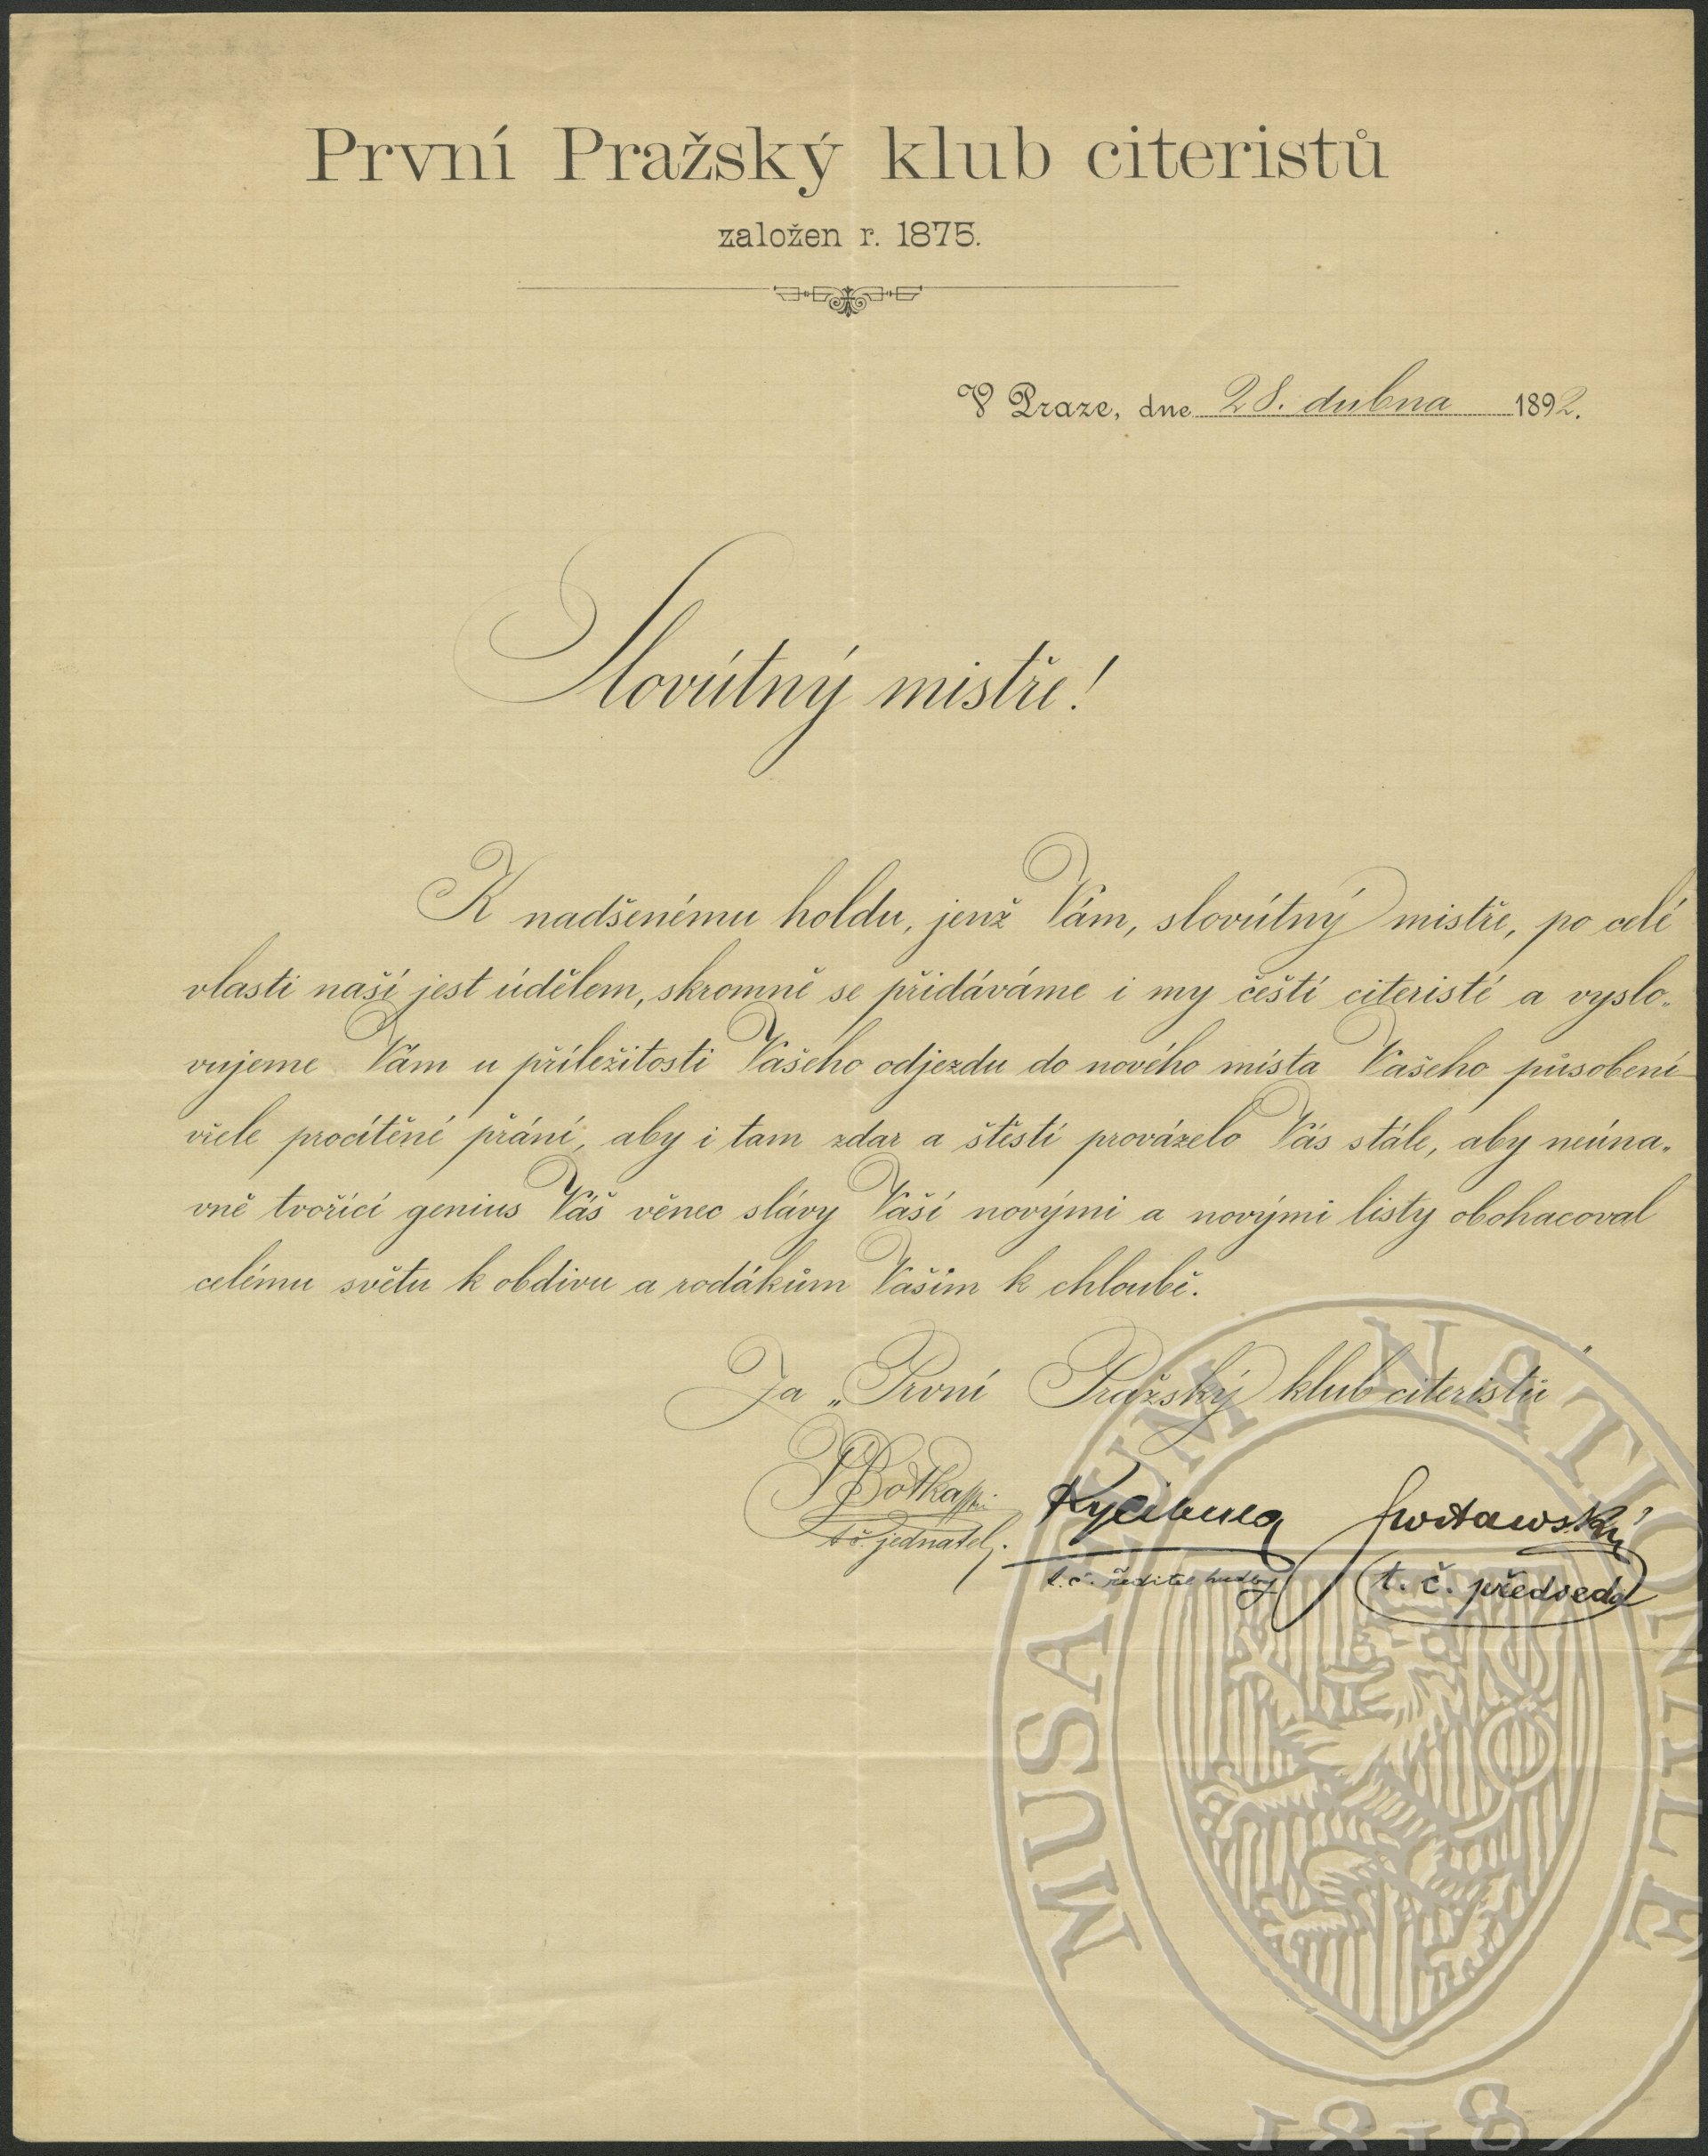 První Pražský klub citeristů
založen r. 1875.
V Praze, dne 28. dubna 1892.
Slovútný mistře!
K nadšenému holdu, jenž Vám, slovútný mistře, po celé
vlasti naší jest údělem, skromně se přidáváme i my čeští citeristé a vyslo-
vujeme Vám u příležitosti Vašeho odjezdu do nového místa Vašeho působení
vřele procítěné přání, aby i tam zdar a štěstí provázelo Vás stále, aby neúna-
vně tvořící genius Váš věnec slávy Vaší novými a novými listy obohacoval
celému světu k obdivu a rodákům Vaším k chloubě.
Za „První Pražský klub citeristů"
t. č. jednatel.
t. č. ředitel hudby
t. č. předseda
MUSAEUM NATIONALE
1818